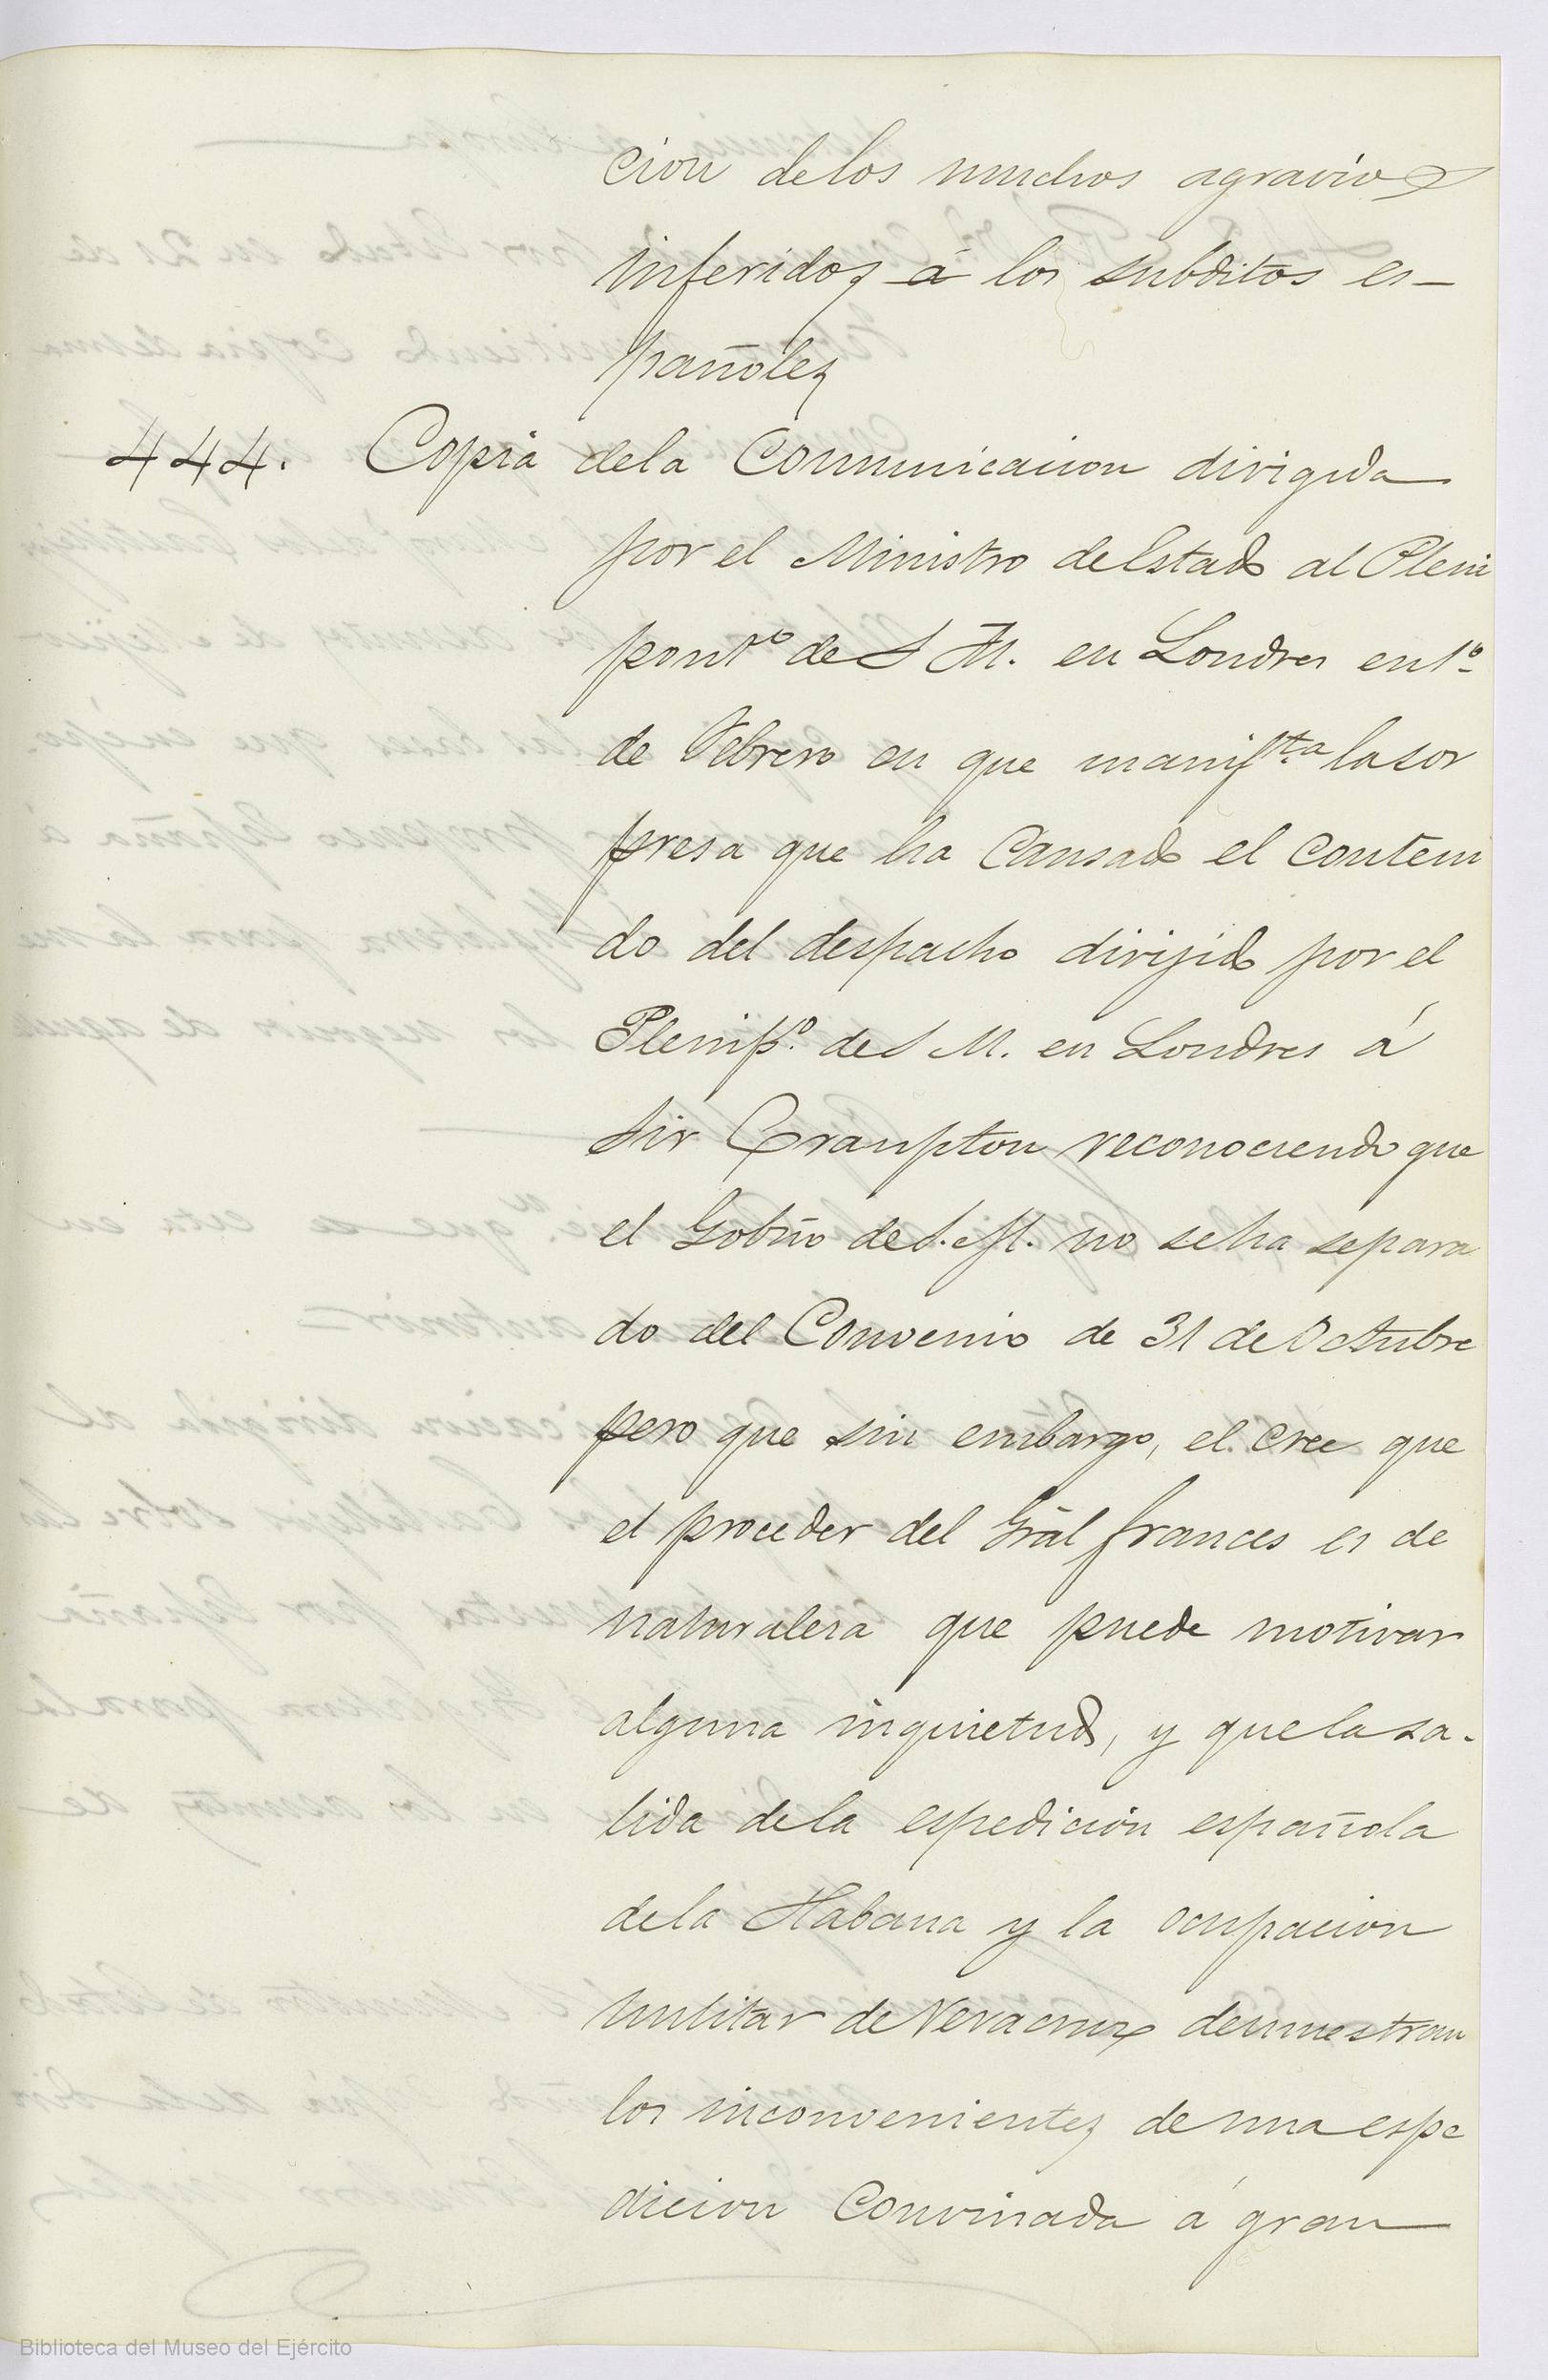 cion delos muchos agravios
inferidos á los subditos es-
pañoles
444. Copia dela Comunicacion dirigida
por el Ministro de Estado al Pleni
pontº de S M. en Londres en 1º
de Febrero en que manifta la sor
presa que ha Causado el conteni
do del despacho dirijido por el
Plenipº. de S M. en Londres á
Sir Crampton reconociendo que
el Gobno de S. M. no se ha separa
do del Convenio de 31 de Octubre
pero que sin embargo, el cree que
el proceder del Gral frances es de
naturalesa que puede motivar
alguna inquietud, y que la sa-
lida de la espedición española
de la Habana y la ocupacion
militar de Veracruz demuestran
los inconvenientes de una espe
dicion Convinada á gran
Biblioteca del Museo del Ejército